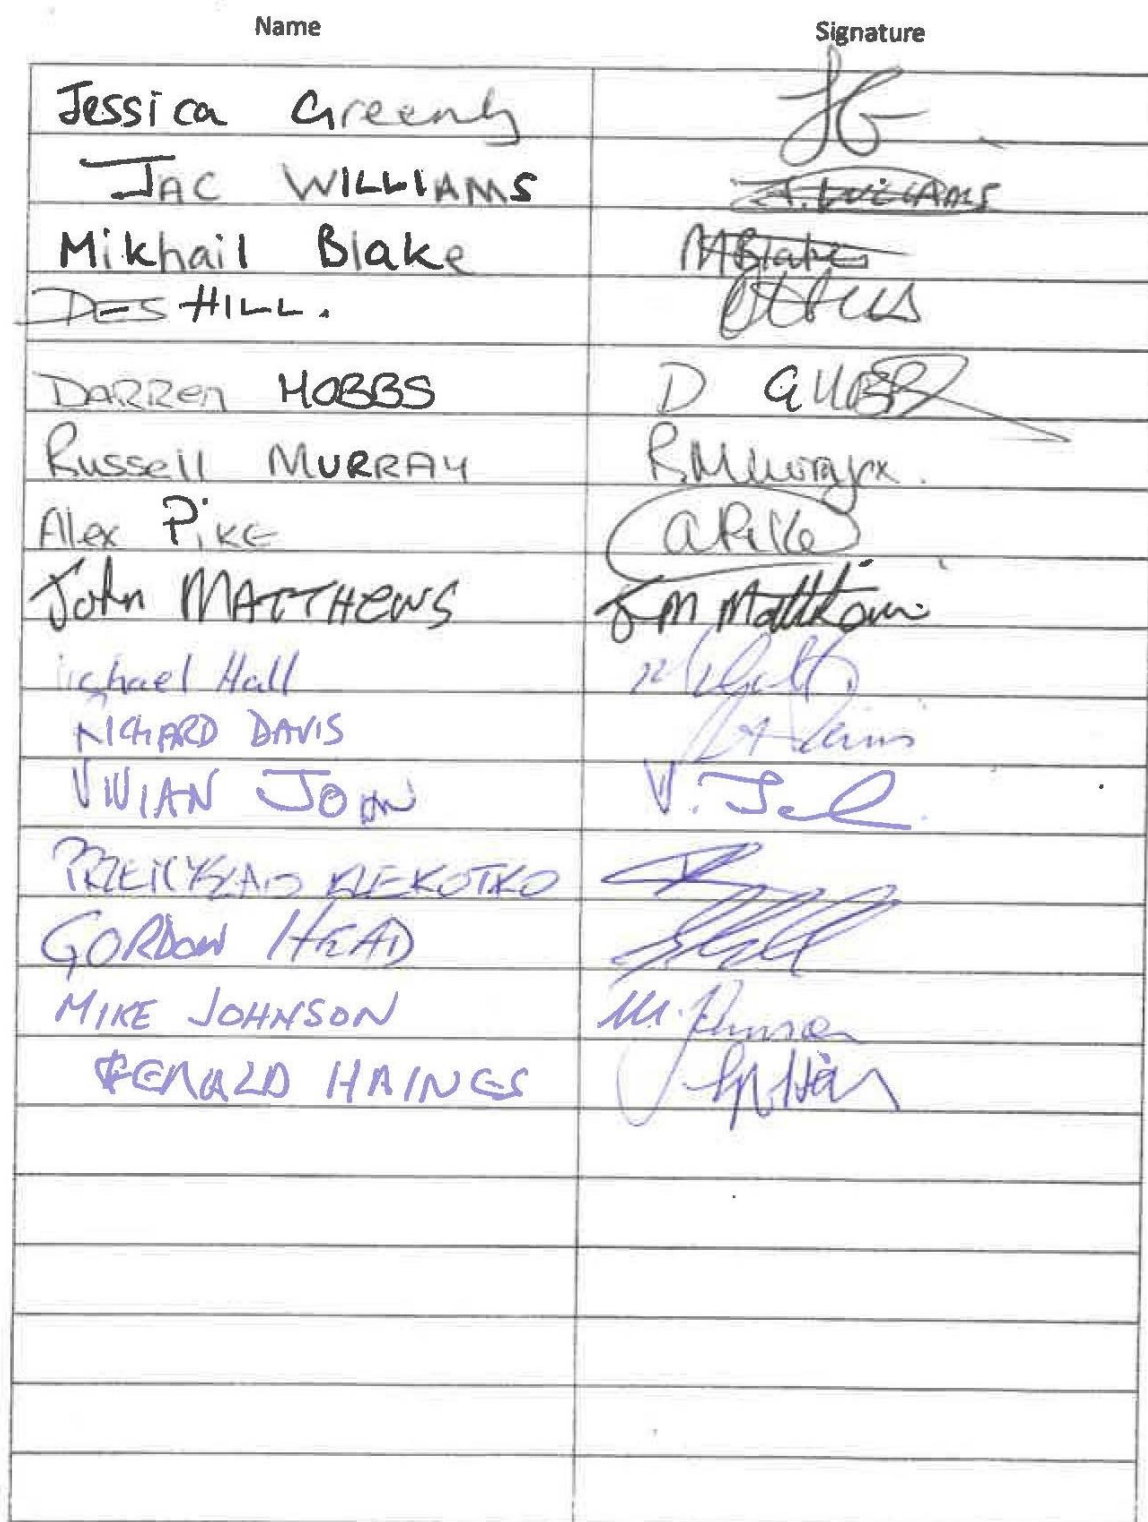 Name Signature
Jessica Greenly JG
JAC WILLIAMS J. WILLIAMS
Mikhail Blake MBlake
DES HILL.
DARREN HOBBS D
Russell MURRAY R.M
Alex PIKE a Pike
John MATTHEWS J M Matthews
ichael Hall
RICHARD DAVIS
VIVIAN JOHN V. Joh
KLEKOTKO
GORDON HEAD
MIKE JOHNSON M. Johnson
GERALD HAINES